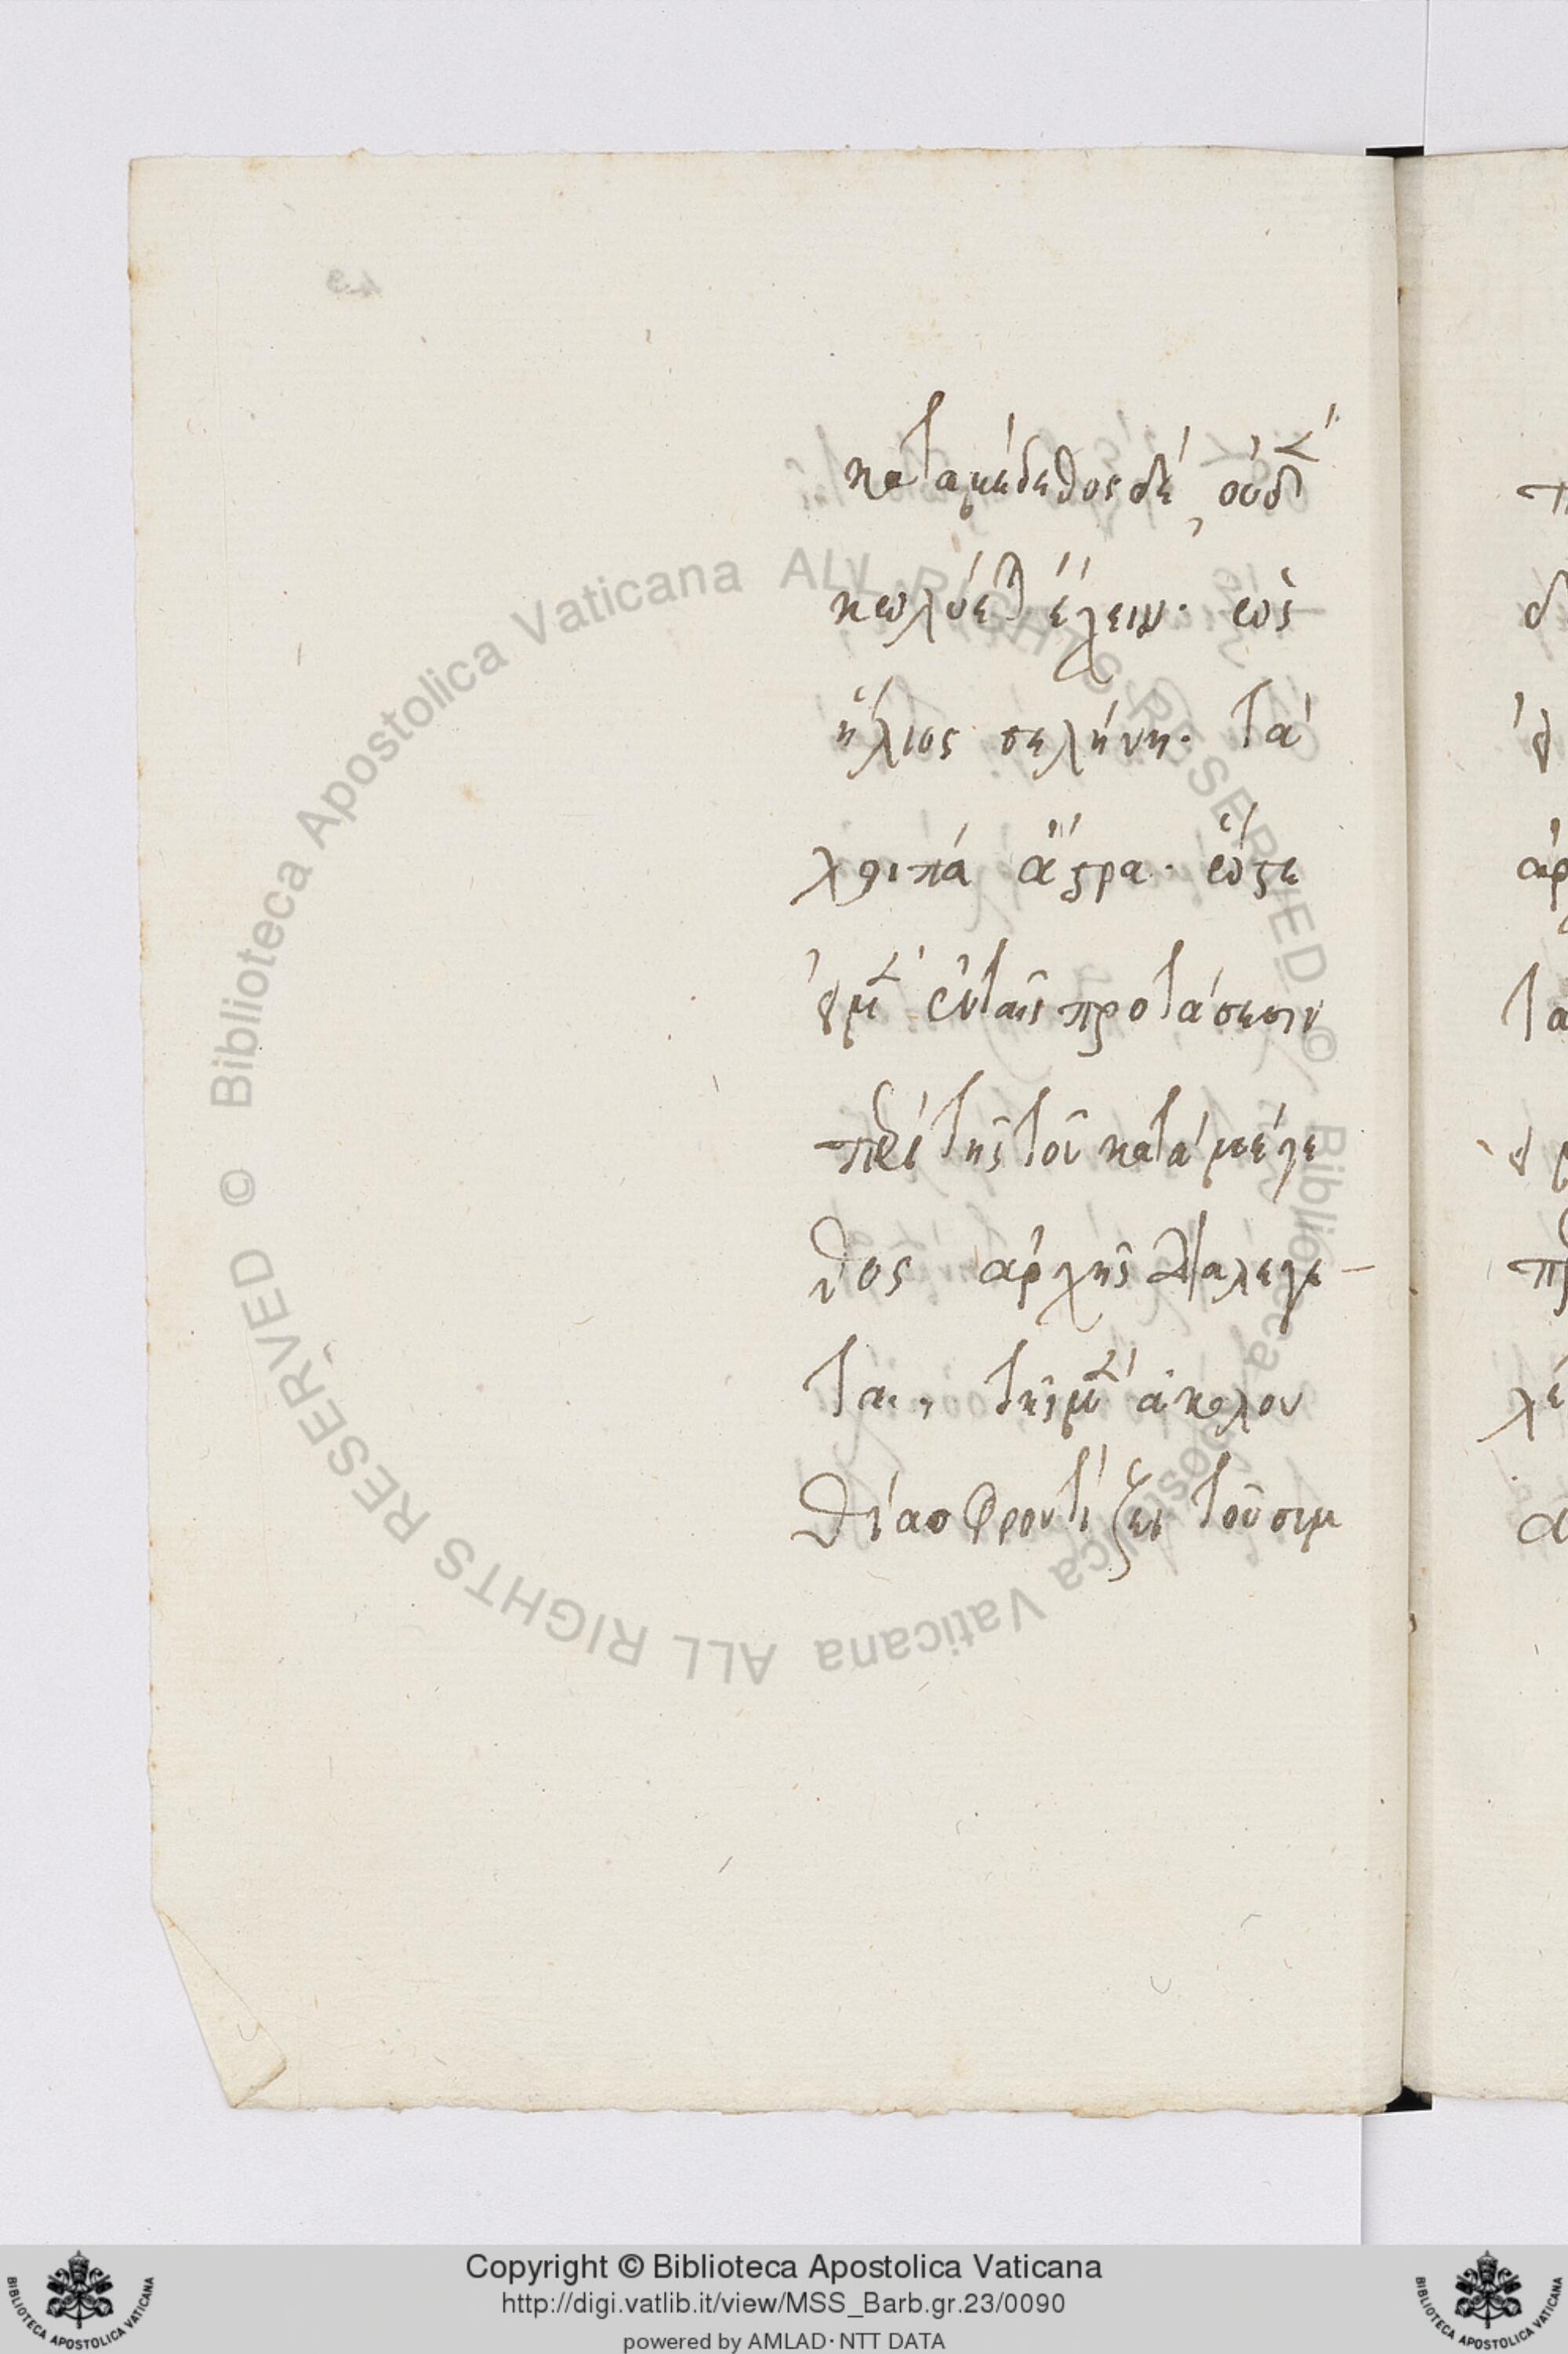 κατα μέγεθος δέ, οὐδὲν
κωλύει ἔχειν· ὡς
ἥλιος σελήνη· τὰ
λοιπά ἄστρα· ὥστε
ἐν μὲν ταῖς προτάσεσιν
περὶ τῆς τοῦ κατά μέγε
θος ἀρχῆς διαλέγε-
ται, τῆς μὲν ἀκολου
θίασ φροντίζει τοῦ συμ
Biblioteca Apostolica Vaticana ALL RIGHTS RESERVED ©
Biblioteca Apostolica Vaticana ALL RIGHTS RESERVED ©
Copyright © Biblioteca Apostolica Vaticana
http://digi.vatlib.it/view/MSS_Barb.gr.23/0090
powered by AMLAD·NTT DATA
BIBLIOTECA APOSTOLICA VATICANA
BIBLIOTECA APOSTOLICA VATICANA